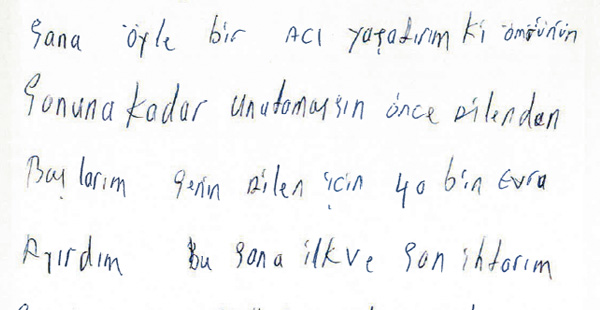 Sana öyle bir ACI yaşatırım ki ömrünün
Sonuna kadar unutamassın önce ailenden
Başlarım Senin ailen için 40 bin Evra
Ayırdım Bu Sana ilk ve Son ihtarım